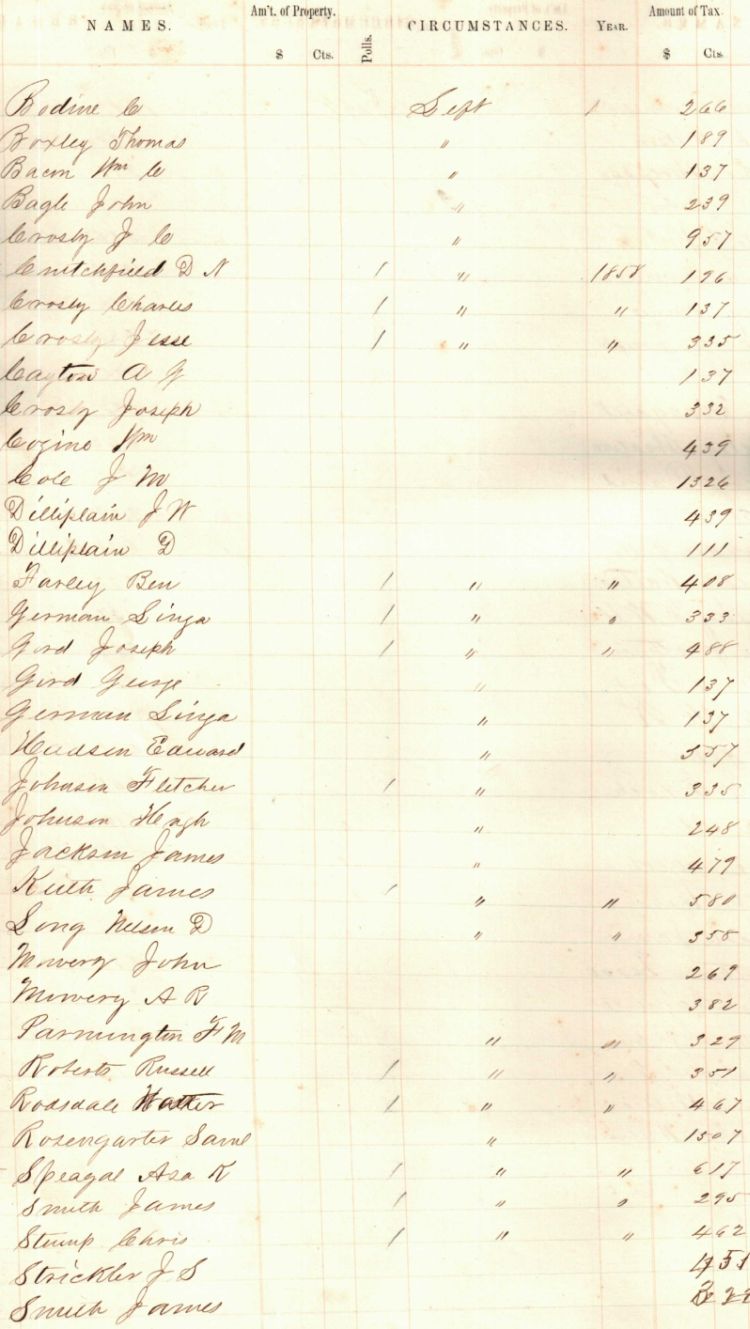 NAMES. Am't. of Property. Polls. CIRCUMSTANCES. YEAR. Amount of Tax
$ Cts. $ Cts.
Bodine C Left 1 266
Boxley Thomas " 189
Bacon Wm C " 137
Bagle John " 239
Crosby J C " 957
Crutchfield D N 1 " 1858 196
Crosby Charles 1 " " 137
Crosby Jesse 1 " " 335
Cayton A G 137
Crosby Joseph 332
Cozine Wm 439
Cole J M 1326
Dilliplain J W 439
Dilliplain D 111
Farley Ben 1 " " 408
German Singa 1 " " 333
Gord Joseph 1 " " 488
Gord George " 137
German Singa " 137
Hudson Edward " 357
Johnson Fletcher 1 " 335
Johnson Hugh " 248
Jackson James " 479
Keith James 1 " " 580
Long Nelson D " " 358
Mowery John 269
Mowery A R 382
Parmington F M " " 329
Roberts Russell 1 " " 351
Rodsdale Walter 1 " " 467
Rosengarter Saml " 1307
Speagal Asa K 1 " " 617
Smith James 1 " " 295
Stump Chris 1 " " 462
Strickler J S 451
Smith James